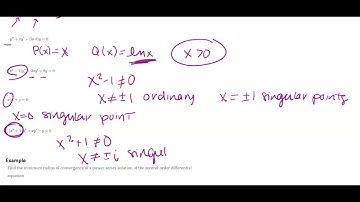 y" + xy' + (ln x)y = 0
P(x) = x Q(x) = lnx x > 0
(x² − 1)y" − 2xy' + 6y = 0
x² − 1 ≠ 0
x ≠ ±1 ordinary x = ±1 singular points
+ y = 0
x=0 singular point
(x² + 1)y" + xy' − y = 0
x² + 1 ≠ 0
x ≠ ± i singul
Example
Find the minimum radius of convergence of a power series solution of the second-order differential
equation